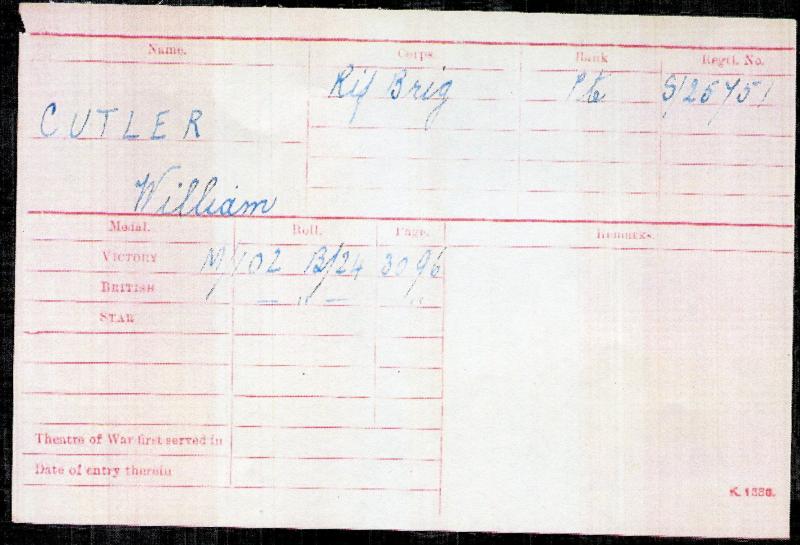 Name. Corps. Rank Regtl. No.
Rif Brig Pte S/25751
CUTLER
William
Medal. Roll. Page. Remarks.
VICTORY M/702 B/24 3096
BRITISH — „ — „
STAR
Theatre of War first served in
Date of entry therein
K. 1380.